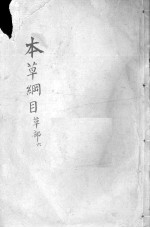 本草綱目 草部六